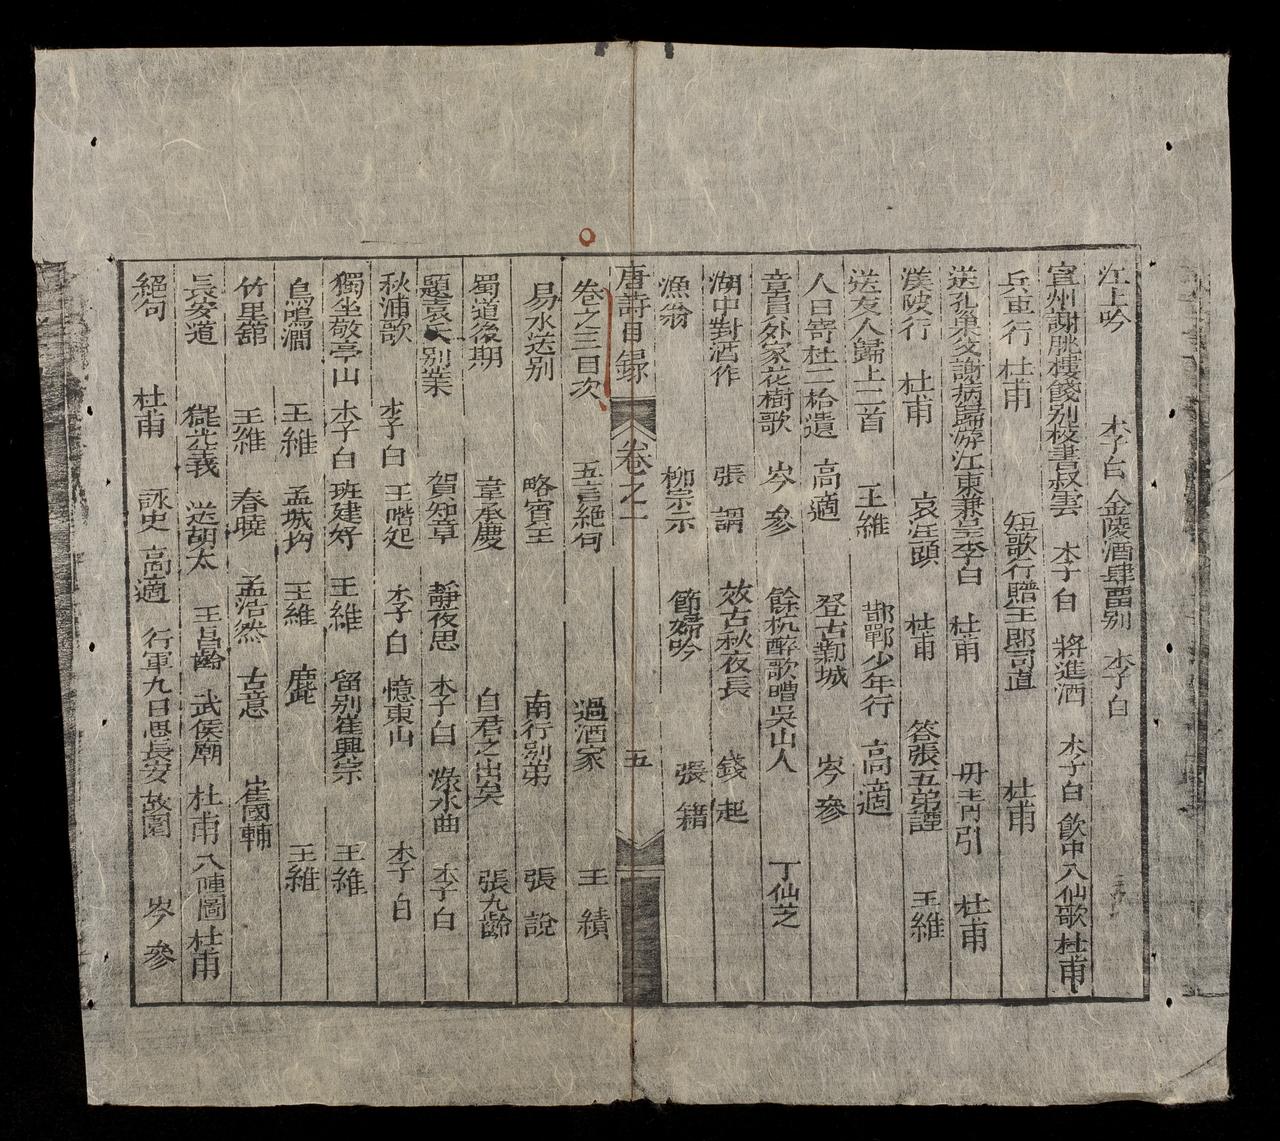 江上吟 李白 金陵酒肆畱別 李白
宣州謝脁樓餞別校書叔雲 李白 將進酒 李白 飮中八仙歌 杜甫
兵車行 杜甫 短歌行贈王郎司直 杜甫
送孔巢父謝病歸游江東兼呈李白 杜甫 丹青引 杜甫
渼陂行 杜甫 哀江頭 杜甫 答張五弟諲 王維
送友人歸上二首 王維 邯鄲少年行 高適
人日寄杜二枱遺 高適 登古鄴城 岑參
韋員外家花樹歌 岑參 餘杭醉歌嘈吳山人 丁仙芝
湖中對酒作 張謂 效古秋夜長 錢起
漁翁 柳宗示 節婦吟 張籍
唐詩目錄 卷之一 五
卷之三目次 五言絶句 過酒家 王績
易水送别 略賓王 南行别弟 張說
蜀道後期 韋承慶 自君之出矣 張九齡
題袁氏别業 賀知章 靜夜思 李白 淥水曲 李白
秋浦歌 李白 王階怨 李白 憶東山 李白
獨坐敬亭山 李白 班建妤 王維 留别崔興宗 王維
鳥鳴澗 王維 孟城坳 王維 鹿砦 王維
竹里舘 王維 春曉 孟浩然 古意 崔國輔
長安道 儲光義 送胡太 王昌齡 武侯廟 杜甫 八陣圖 杜甫
絕句 杜甫 詠史 高適 行軍九日思長安故園 岑參